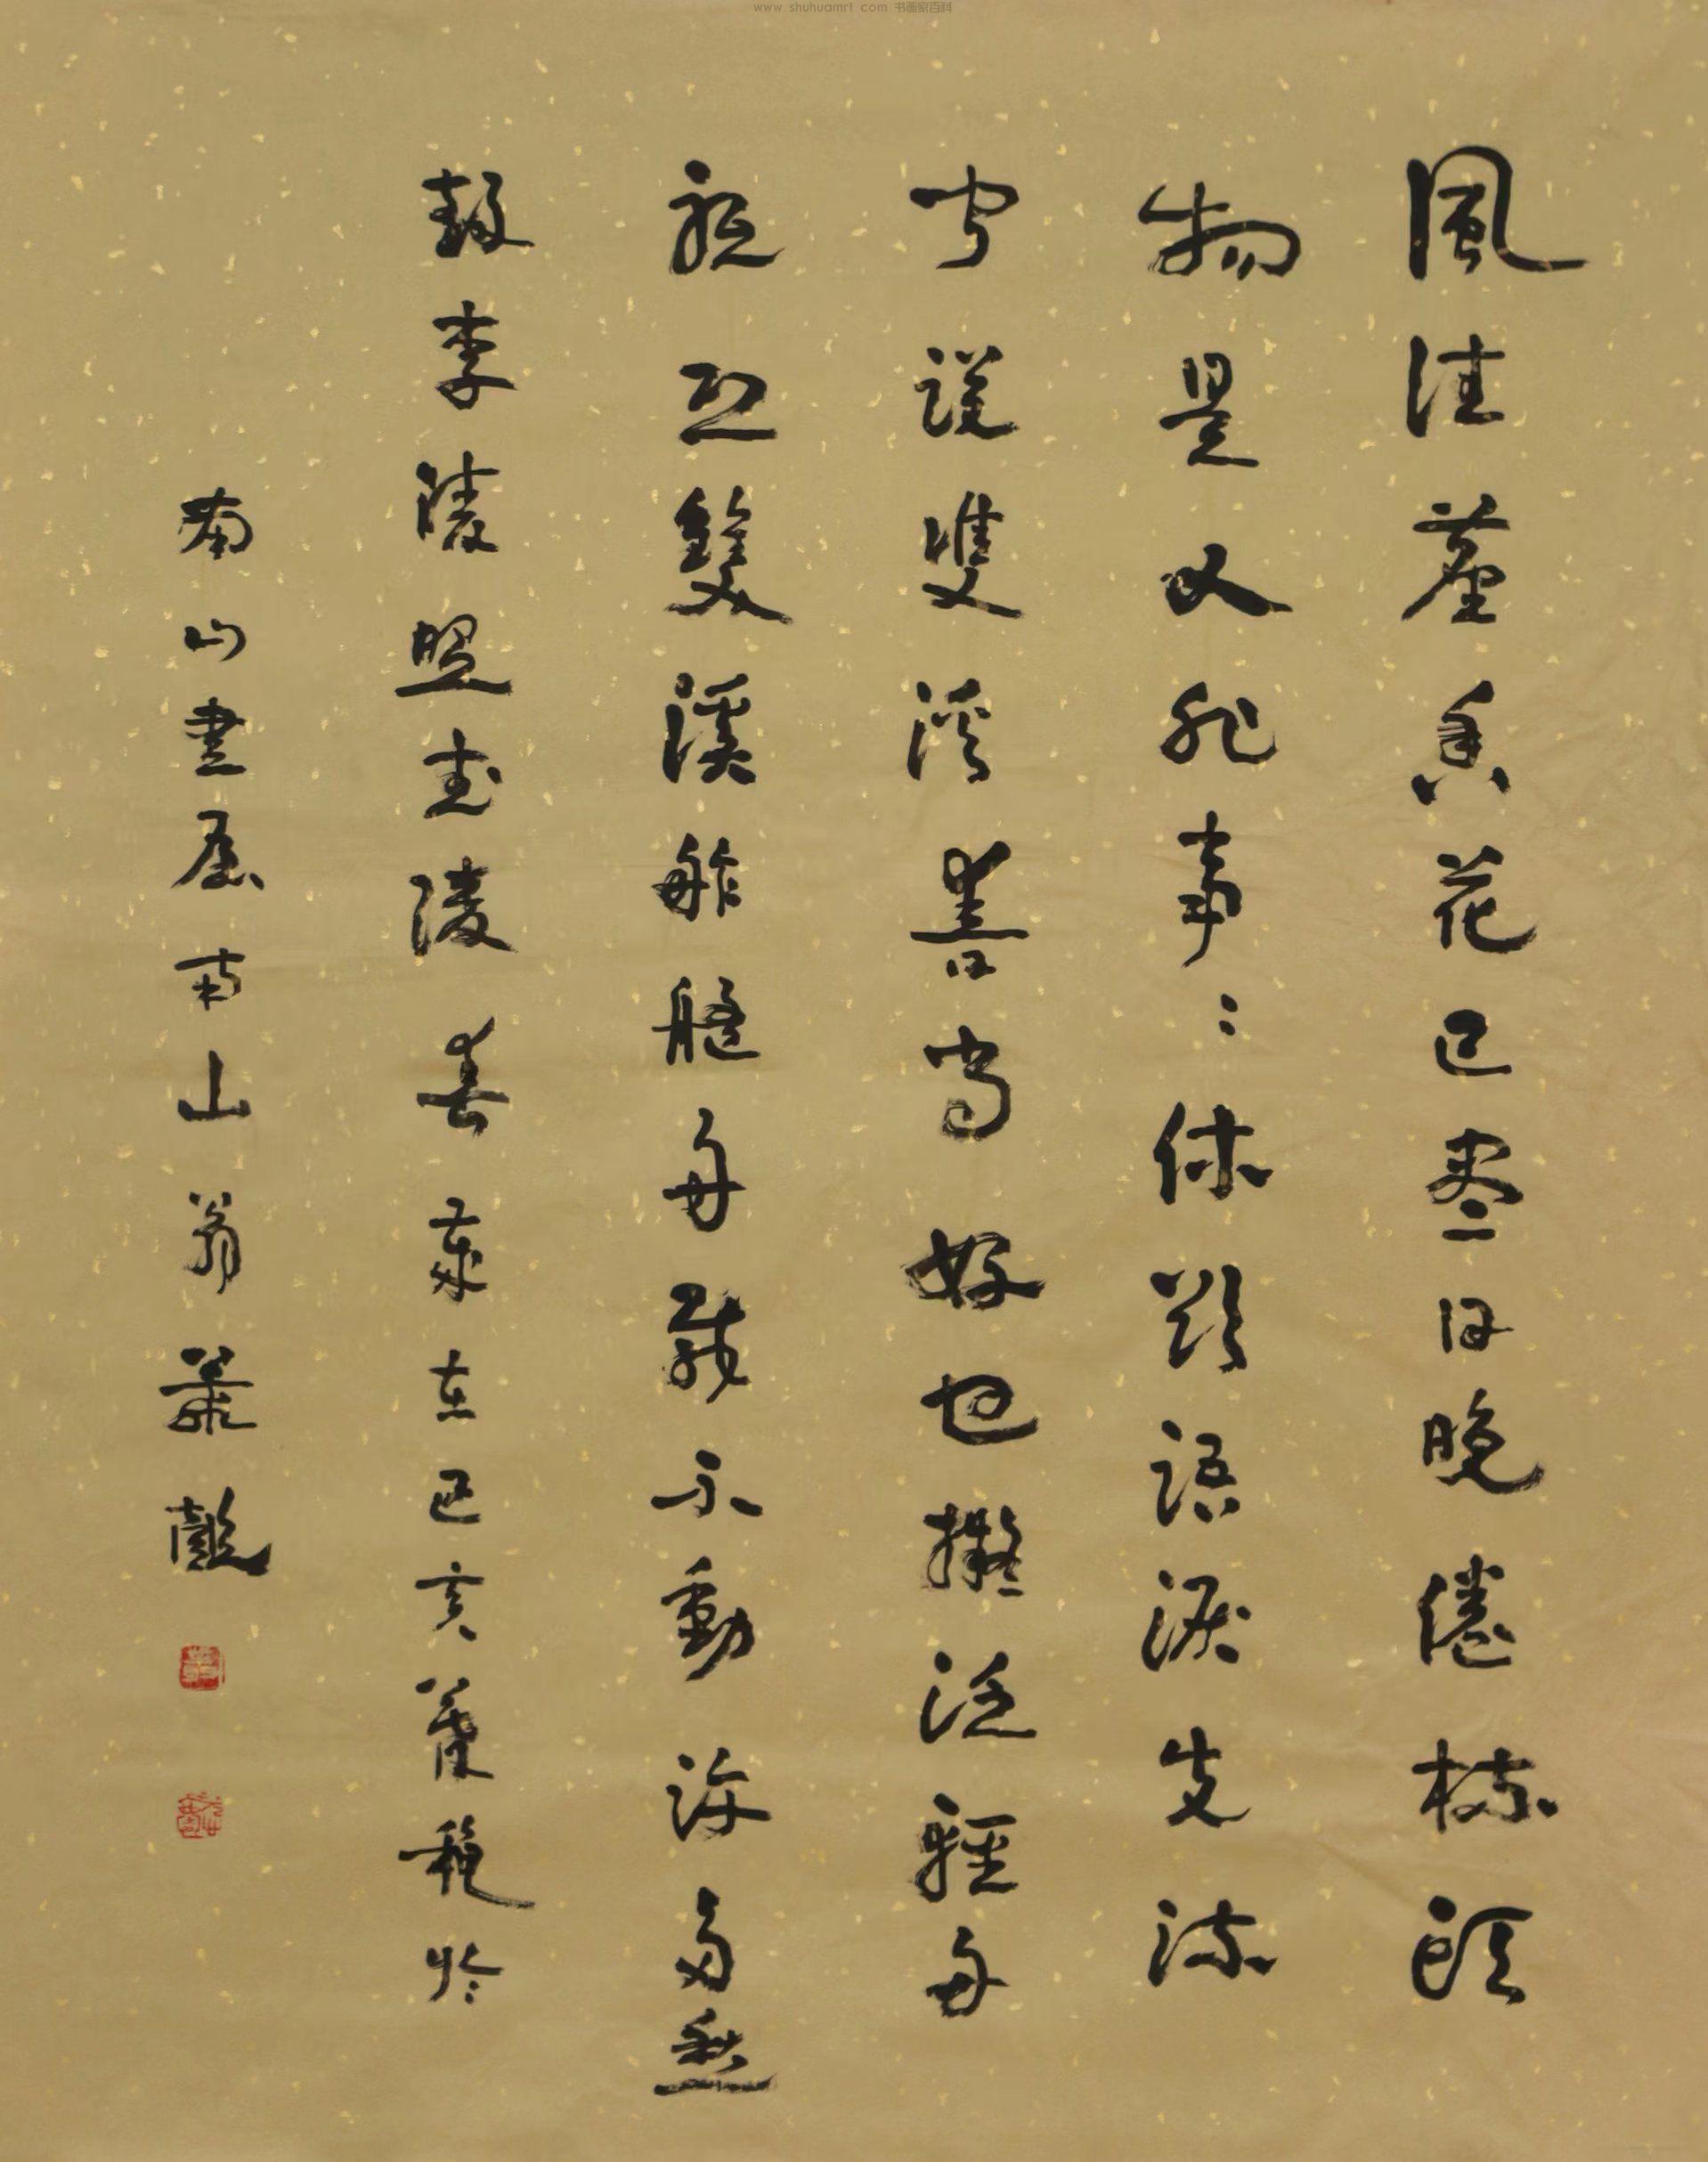 www.shuhuamrt.com 书画家百科
風住塵香花已盡日晚倦梳頭
物是人非事〻休欲語淚先流
聞說雙溪春尚好也擬泛輕舟
祇恐雙溪舴艋舟載不動許多愁
錄李清照武陵春歲在己亥秋於
南山書屋南山翁